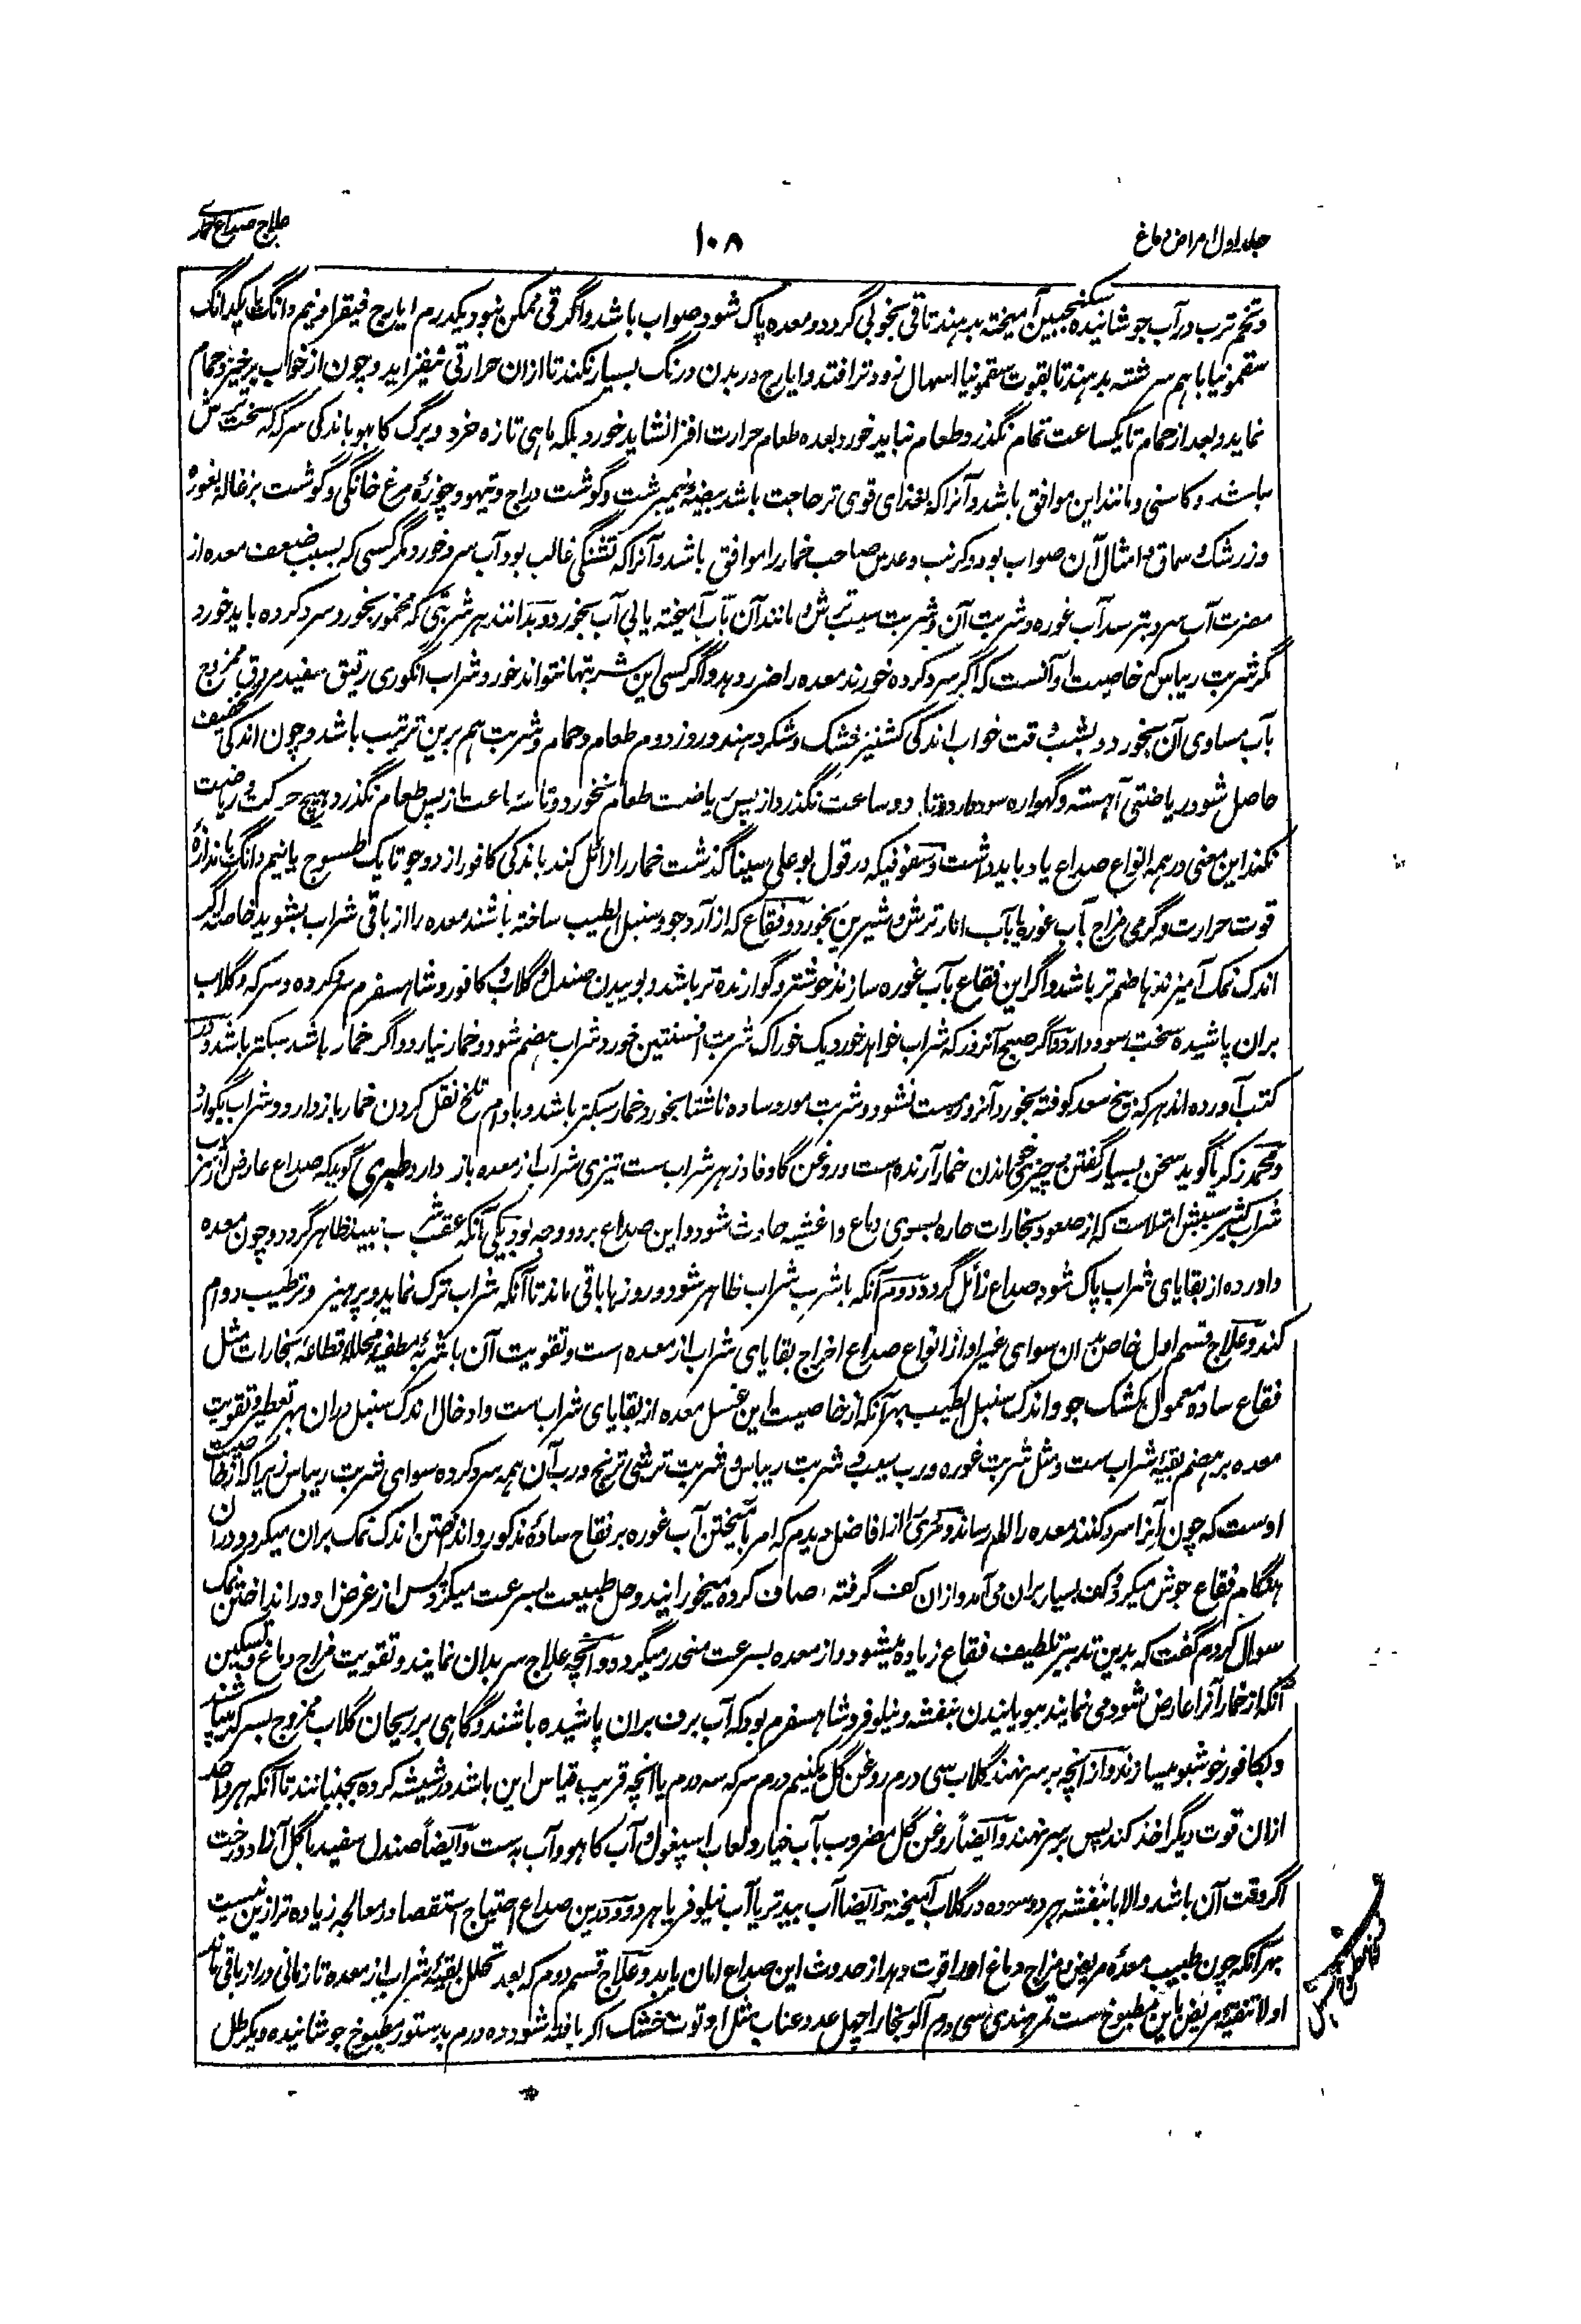 جلد اول امراض دماغ
۱۰۸
علاج صداع خماری
و تخم ترب در آب جوشانیده سکنجبین آمیخته بدهند تا قی بخوبی گردد و معده پاک شود صواب باشد و اگر قی ممکن نبود یکدرم ایارج فیقرا و نیم دانگ یا یکدانگ
سقمونیا با هم سرشته بدهند تا بقوت سقمونیا اسهال زودتر افتد و ایارج در بدن درنگ بسیار نکند تا ازان حرارتی نیفزاید و چون از خواب برخیزد حمام
نماید و بعد از حمام تا یکساعت تمام نگذرد طعام نباید خورد و بعده طعام حرارت افزا نشاید خورد بلکه ماهی تازه خرد و برگ کاهو با اندکی سرکه که سخت ترش
نباشد و کاسنی و مانند این موافق باشد و آنرا که بغذای قوی تر حاجت باشد بیضه نیمبرشت و گوشت دراج و تیهو و چوزه مرغ خانگی و گوشت بزغاله بغوره
و زرشک و سماق و امثال آن صواب بود و کرنب و عدس صاحب خمار را موافق باشد و آنرا که تشنگی غالب بود آب سرد خورد مگر کسی که بسبب ضعف معده از
مضرت آب سرد بترسد آب غوره و شربت آن و شربت سیب ترش و مانند آن بآب آمیخته یا بی آب بخورد و بدانند هر شربتی که مخمور بخورد سرد کرده باید خورد
مگر شربت ریباس که خاصیت او آنست که اگر سرد کرده خورند معده را ضرر دهد و اگر کسی این شربتها نتواند خورد شراب انگوری رقیق سفید مروق ممزوج
بآب مساوی آن بخورد و بشب وقت خواب اندکی کشنیز خشک و شکر دهند و روز دوم طعام و حمام و شربت هم برین ترتیب باشد و چون اندکی تخفیف
حاصل شود ریاضتی آهسته و گهواره سود دارد و تا دو ساعت نگذرد از پس ریاضت طعام نخورد و تا سه ساعت از پس طعام نگذرد هیچ حرکت و ریاضت
نکند این معنی در همه انواع صداع یاد باید داشت و سفوفیکه در قول بو علی سینا گذشت خمار را زائل کند با اندکی کافور از دو جو تا یک طسوج یا نیم دانگ باندازه
قوت حرارت و گرمی مزاج بآب غوره یا بآب انار ترش و شیرین بخورد و فقاع که از آرد جو و سنبل الطیب ساخته باشند معده را از باقی شراب بشوید خاصه اگر
اندک نمک آمیزند و هاضم تر باشد و اگر این فقاع بآب غوره سازند خوشتر و گوارنده تر باشد و بوییدن صندل و گلاب و کافور و شاهسفرم سرد کرده و سرکه و گلاب
بران پاشیده سخت سود دارد و اگر صبح آنروز که شراب خواهد خورد یک خوراک شربت افسنتین خورد شراب هضم شود و خمار نیارد و اگر خمار باشد سبکتر باشد و در
کتب آورده اند هر که بیخ سعد کوفته بخورد آنروز مست نشود و شربت مورد ساده ناشتا بخورد خمار سبکتر باشد و بادام تلخ نقل کردن خمار باز دارد و شراب بگوارد
و محمد زکریا گوید سخن بسیار گفتن و چیزی خواندن خمار آرنده است و روغن گاو فادزهر شراب ست تیزی شراب از معده باز دارد طبری گوید که صداع عارض از شرب
شراب کثیر سببش امتلاست که از صعود بخارات حاره بسوی دماغ و اغشیه حادث شود و این صداع بر دو وجه بود یکی آنکه عقب شرب نبیذ ظاهر گردد و چون معده
و اورده از بقایای شراب پاک شود صداع زائل گردد دوم آنکه با شرب شراب ظاهر شود و روزها باقی ماند تا آنکه شراب ترک نماید و پرهیز و ترطیب دوام
کند و علاج قسم اول خاص بدان سوای غیر او از انواع صداع اخراج بقایای شراب از معده است و تقویت آن باشربه مطفیه محلله قطاعه بخارات مثل
فقاع ساده معمول بکشک جو و اندک سنبل الطیب بهر آنکه از خاصیت این غسل معده از بقایای شراب ست و ادخال اندک سنبل دران بهر تعطیر و تقویت
معده بر هضم بقیه شراب ست و مثل شربت غوره و رب سیب و شربت ریباس و شربت ترشی ترنج و رب آن همه سرد کرده سوای شربت ریباس زیرا که از خاصیت
اوست که چون آنرا سرد کنند معده را الم رساند و مردی را از افاضل دیدم که امر بآمیختن آب غوره بر فقاع ساده مذکور و انداختن اندک نمک بران میکرد و دران
هنگام فقاع جوش میگرد و کف بسیار بران می آمد و ازان کف گرفته صاف کرده میخورانید و حل طبیعت بسرعت میکرد و پس از غرض او در انداختن نمک
سوال کردم گفت که بدین تدبیر تلطیف فقاع زیاده میشود و از معده بسرعت منحدر میگردد و آنچه علاج سر بدان نمایند و تقویت مزاج دماغ و تسکین
آنکه از خمار آنرا عارض شود می نمایند ببویانیدن بنفشه و نیلوفر و شاهسفرم بود که آب برف بران پاشیده باشند و گاهی بر ریحان گلاب ممزوج بسرکه میپاشند
و بکافور خوشبو میسازند و از آنچه بر سر نهند گلاب سی درم روغن گل یکنیم درم سرکه سه درم یا آنچه قریب قیاس این باشد در شیشه کرده بجنبانند تا آنکه هر واحد
ازان قوت دیگر اخذ کند پس بر سر نهند و ایضاً روغن گل مضروب بآب خیار و لعاب اسپغول و آب کاهو و آب بدست و ایضاً صندل سفید با گل آزاد درخت
اگر وقت آن باشد والا با بنفشه هر دو سوده در گلاب آمیخته و ایضا آب بید تر یا آب نیلوفر یا هر دو و درین صداع احتیاج استقصا در معالجه زیاده تر ازین نیست
بهر آنکه چون طبیب معده مریض و مزاج دماغ او را قوت دهد از حدوث این صداع امان یابد و علاج قسم دوم که بعد تحلل بقیه شراب از معده تا زمانی دراز باقی ماند
اولا تنقیه مریض باین مطبوخ ست تمر هندی سی درم آلو بخارا چهل عدد عناب مثل او توت خشک اگر یافته شود ده درم بدستور مطبوخ جوشانیده و یکرطل